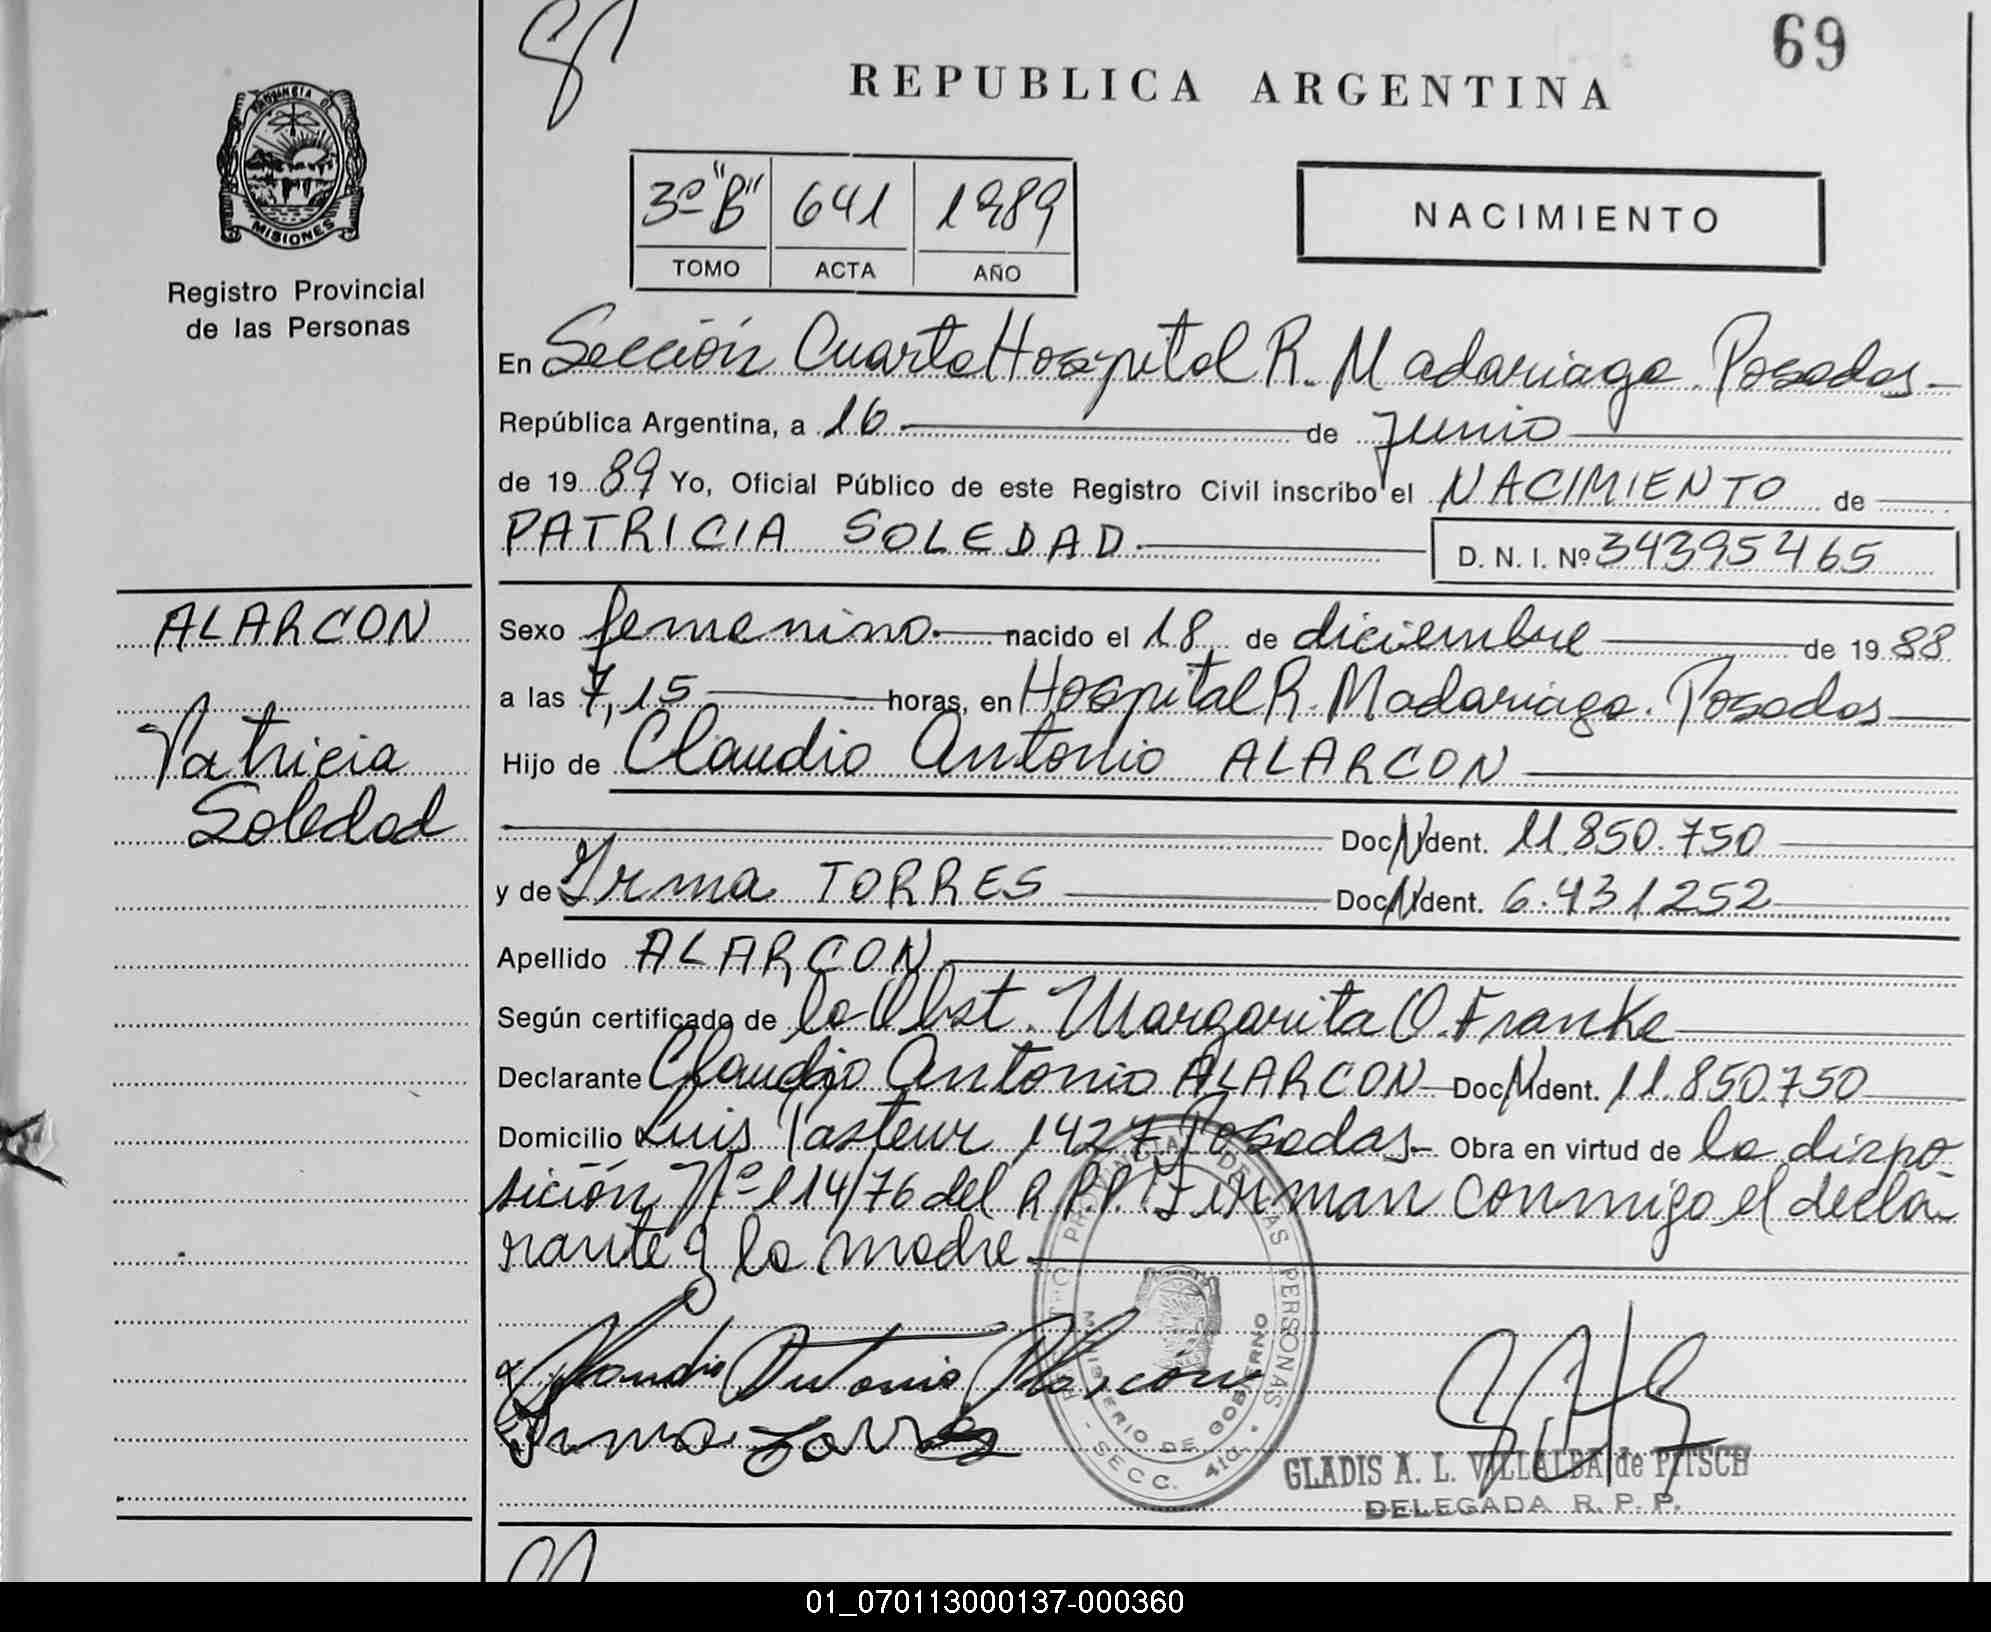 69
REPUBLICA ARGENTINA
PROVINCIA DE
MISIONES
Registro Provincial
de las Personas
3º "B" 641 1989
TOMO ACTA AÑO
NACIMIENTO
En Sección Cuarta Hospital R. Madariaga. Posadas
República Argentina, a 16 de Junio
de 1989 Yo, Oficial Público de este Registro Civil inscribo el NACIMIENTO de
PATRICIA SOLEDAD D. N. I. Nº 34395465
ALARCON
Patricia
Soledad
Sexo femenino nacido el 18 de diciembre de 1988
a las 7,15 horas, en Hospital R. Madariaga. Posadas
Hijo de Claudio Antonio ALARCON
Doc. Ident. 11.850.750
y de Irma TORRES Doc. Ident. 6.431252
Apellido ALARCON
Según certificado de la Obst. Margarita O. Franke
Declarante Claudio Antonio ALARCON Doc. Ident. 11.850.750
Domicilio Luis Pasteur 1427 Posadas Obra en virtud de la dispo
sición Nº 114/76 del R.P.P. Firman conmigo el decla
rante y la madre
Claudio Antonio Alarcón
Irma Torres
PROVINCIAL DE LAS PERSONAS
MINISTERIO DE GOBIERNO
SECC. 4ta.
GLADIS A. L. VILLALBA de PITSCH
DELEGADA R. P. P.
01_070113000137-000360